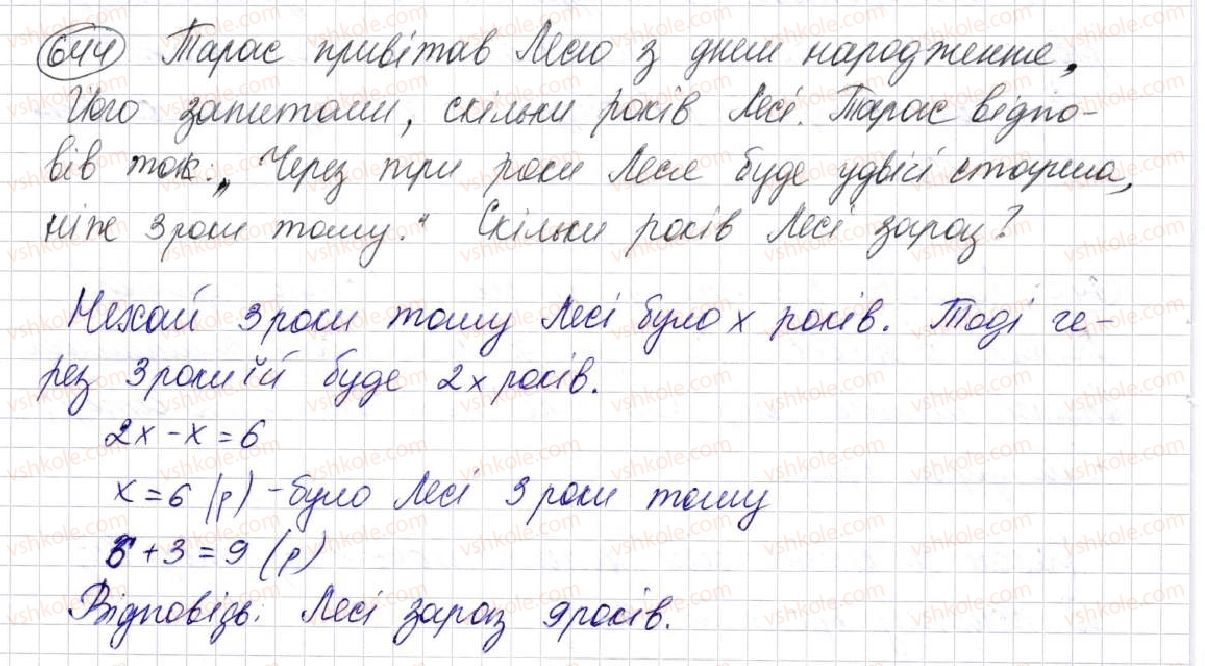 644 Тарас привітав Лесю з днем народження.
Його запитали, скільки років Лесі. Тарас відпо-
вів так: „Через три роки Леся буде удвічі старша,
ніж 3 роки тому." Скільки років Лесі зараз?
Нехай 3 роки тому Лесі було x років. Тоді че-
рез 3 роки їй буде 2x років.
2x - x = 6
x = 6 (р) - було Лесі 3 роки тому
6 + 3 = 9 (р)
Відповідь: Лесі зараз 9 років.